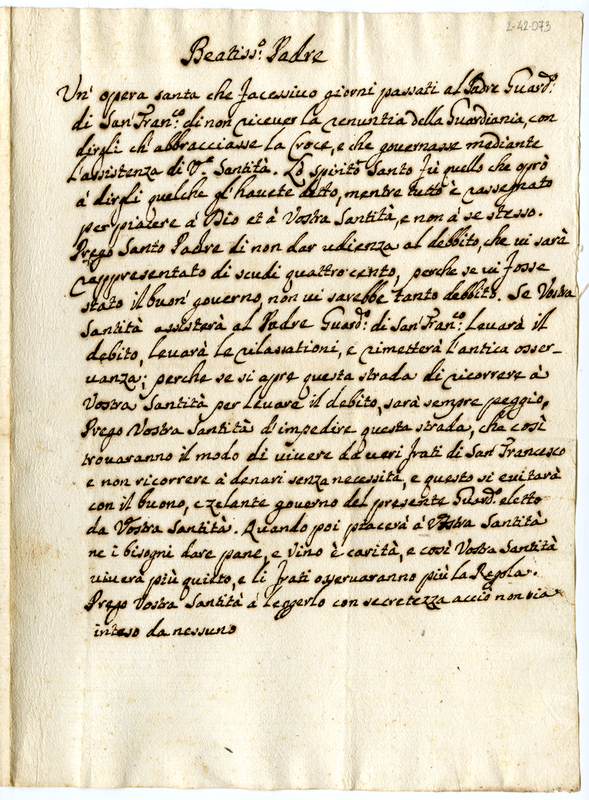 2-42-073
Beatiss.º Padre
Un' opera santa che facessivo giorni passati al Padre Guard.º
di San Fran.co di non ricever la renuntia della Guardiania, con
dirgli ch' abbracciasse la Croce, e che governasse mediante
l'assistenza di V.ª Santità. Lo spirito Santo fù quello che oprò
à dirgli quelche gl' havete detto, mentre tutto è rassegnato
per piacere à Dio et à Vostra Santità, e non à se stesso.
Prego Santo Padre di non dar udienza al debbito, che vi sarà
rappresentato di scudi quattrocento, perche se vi fosse
stato il buon' governo, non vi sarebbe tanto debbito. Se Vostra
Santità assisterà al Padre Guard.º di San Fran.co levarà il
debito, levarà le rilassationi, e rimetterà l'antica osser-
vanza; perche se si apre questa strada di ricorrere à
Vostra Santità per levare il debito, sarà sempre peggio.
Prego Vostra Santità d'impedire questa strada, che così
trovaranno il modo di vivere da veri frati di San Francesco
e non ricorrere à denari senza necessità, e questo si evitarà
con il buono, e zelante governo del presente Guard.º eletto
da Vostra Santità. Quando poi piacerà à Vostra Santità
ne i bisogni dare pane, e vino è carità, e così Vostra Santità
viverà più quieto, e li frati osservaranno più la Regola.
Prego Vostra Santità à leggerlo con secretezza acciò non sia
inteso da nessuno